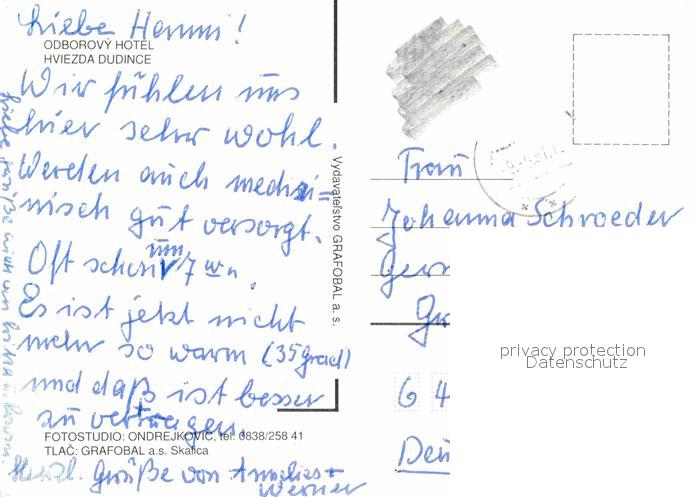 Liebe Hanni!
ODBOROVÝ HOTEL
HVIEZDA DUDINCE
Wir fühlen uns
hier sehr wohl.
Werden auch medizi=
nisch gut versorgt.
Oft schon um 7
Es ist jetzt nicht
mehr so warm (35 Grad)
und daß ist besser
zu vertragen.
FOTOSTUDIO: ONDREJKOVIČ, tel. 0838/258 41
TLAČ: GRAFOBAL a.s. Skalica
Herzl. Grüße von Annelies +
Werner
Liebe Grüße auch an
Vydavateľstvo GRAFOBAL a. s.
Frau
Johanna Schroeder
Ger
Gr
6 4
Deu
privacy protection
Datenschutz